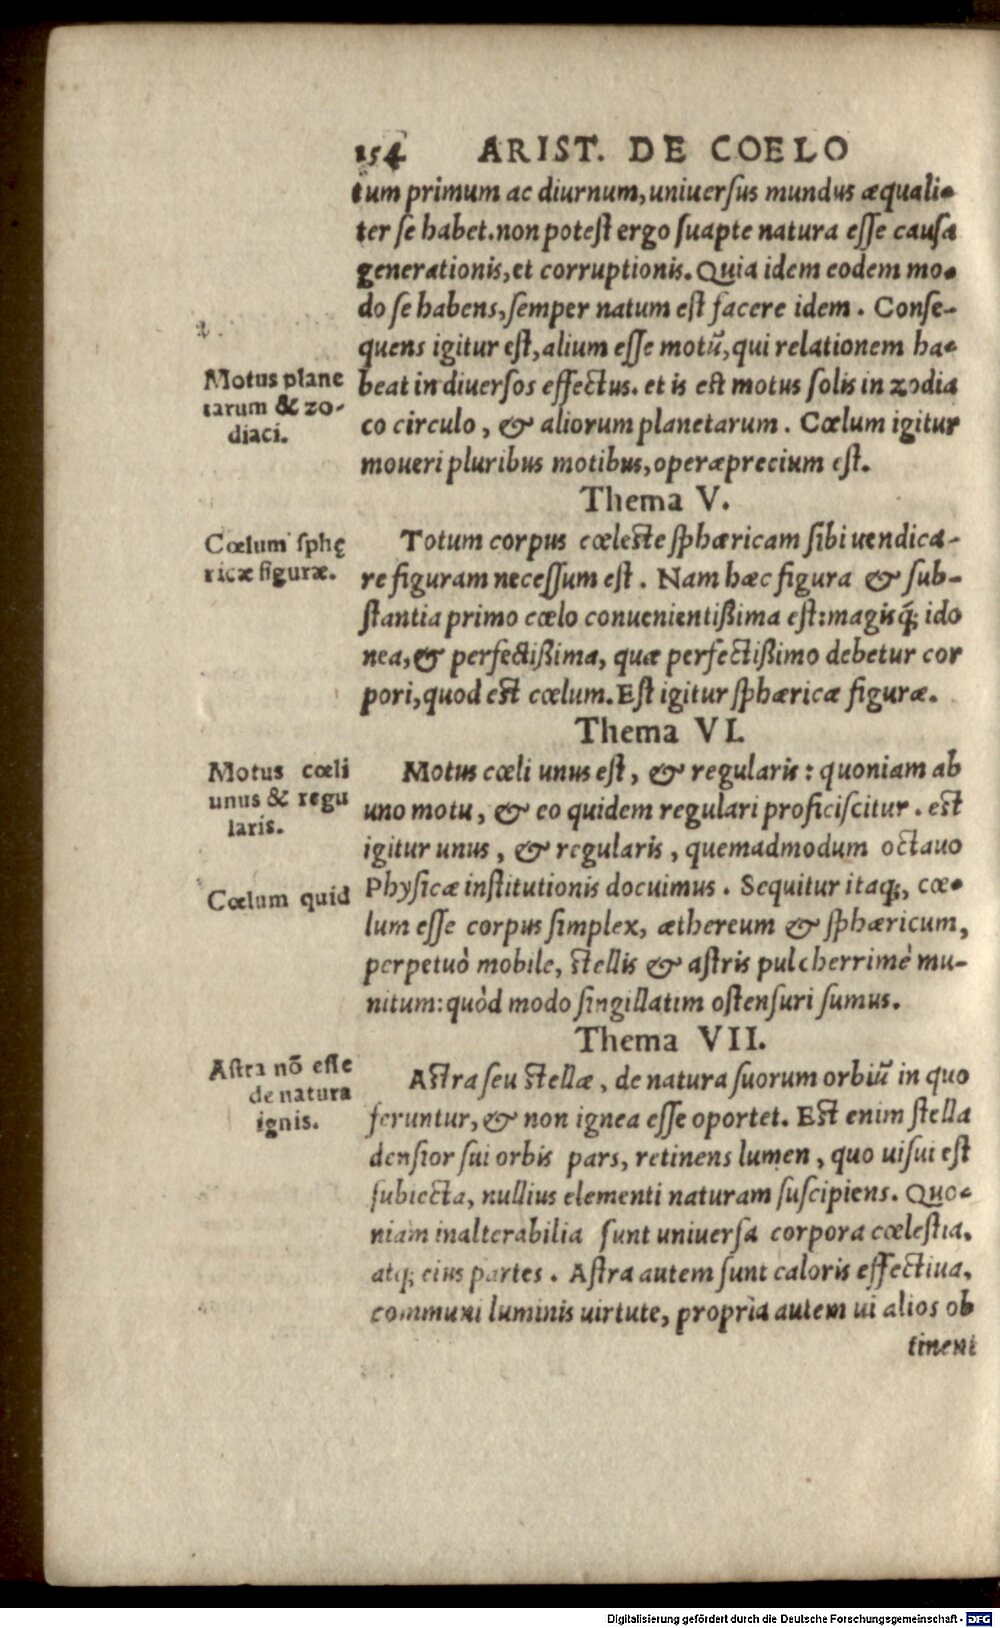 154 ARIST. DE COELO
tum primum ac diurnum, uniuersus mundus æquali-
ter se habet. non potest ergo suapte natura esse causa
generationis, et corruptionis. Quia idem eodem mo-
do se habens, semper natum est facere idem. Conse-
quens igitur est, alium esse motũ, qui relationem ha-
Motus plane
tarum & zo-
diaci.
beat in diuersos effectus. et is est motus solis in zodia
co circulo, & aliorum planetarum. Cœlum igitur
moueri pluribus motibus, operæprecium est.
Thema V.
Cœlum sphę
ricæ figuræ.
Totum corpus cœleste sphæricam sibi uendica-
re figuram necessum est. Nam hæc figura & sub-
stantia primo cœlo conuenientißima est: magisq́; ido
nea, & perfectißima, quæ perfectißimo debetur cor
pori, quod est cœlum. Est igitur sphæricæ figuræ.
Thema VI.
Motus cœli
unus & regu
laris.
Motus cœli unus est, & regularis: quoniam ab
uno motu, & eo quidem regulari proficiscitur. est
igitur unus, & regularis, quemadmodum octauo
Cœlum quid
Physicæ institutionis docuimus. Sequitur itaq;, cœ-
lum esse corpus simplex, æthereum & sphæricum,
perpetuò mobile, stellis & astris pulcherrimè mu-
nitum: quòd modo singillatim ostensuri sumus.
Thema VII.
Astra nõ esse
de natura
ignis.
Astra seu stellæ, de natura suorum orbiũ in quo
feruntur, & non ignea esse oportet. Est enim stella
densior sui orbis pars, retinens lumen, quo uisui est
subiecta, nullius elementi naturam suscipiens. Quo-
niam inalterabilia sunt uniuersa corpora cœlestia,
atq; eius partes. Astra autem sunt caloris effectiua,
communi luminis uirtute, propria autem ui alios ob
tinent
Digitalisierung gefördert durch die Deutsche Forschungsgemeinschaft - DFG